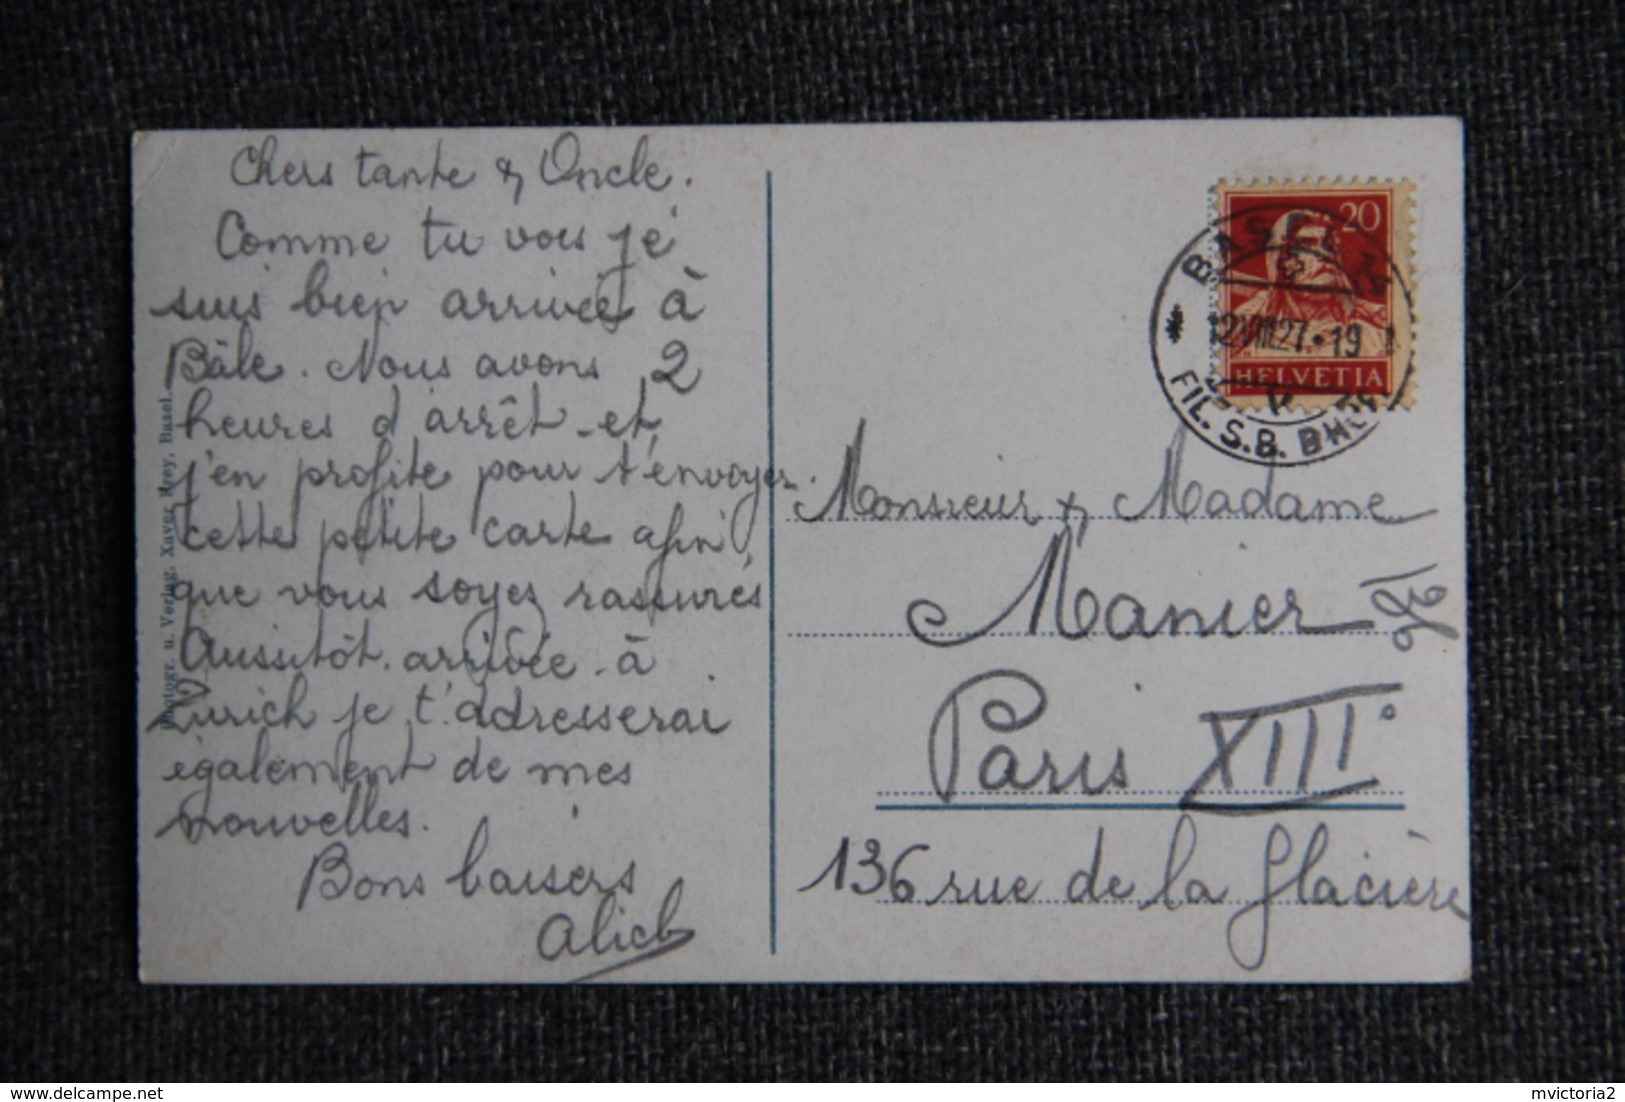 Chers tante & Oncle.
Comme tu vois je
suis bien arrivée à
Bâle. Nous avons 2
heures d'arrêt et
j'en profite pour t'envoyer
cette petite carte afin
que vous soyez rassurés
Aussitôt arrivée à
Zurich je t'adresserai
également de mes
nouvelles.
Bons baisers
Photogr. u. Verlag. Xaver Frey, Basel.
20
HELVETIA
BASEL
12.VIII.27.•19
FIL. S.B. BHO
Monsieur & Madame
Manier
Paris XIII°
136 rue de la Glacière
delcampe.net
mvictoria2